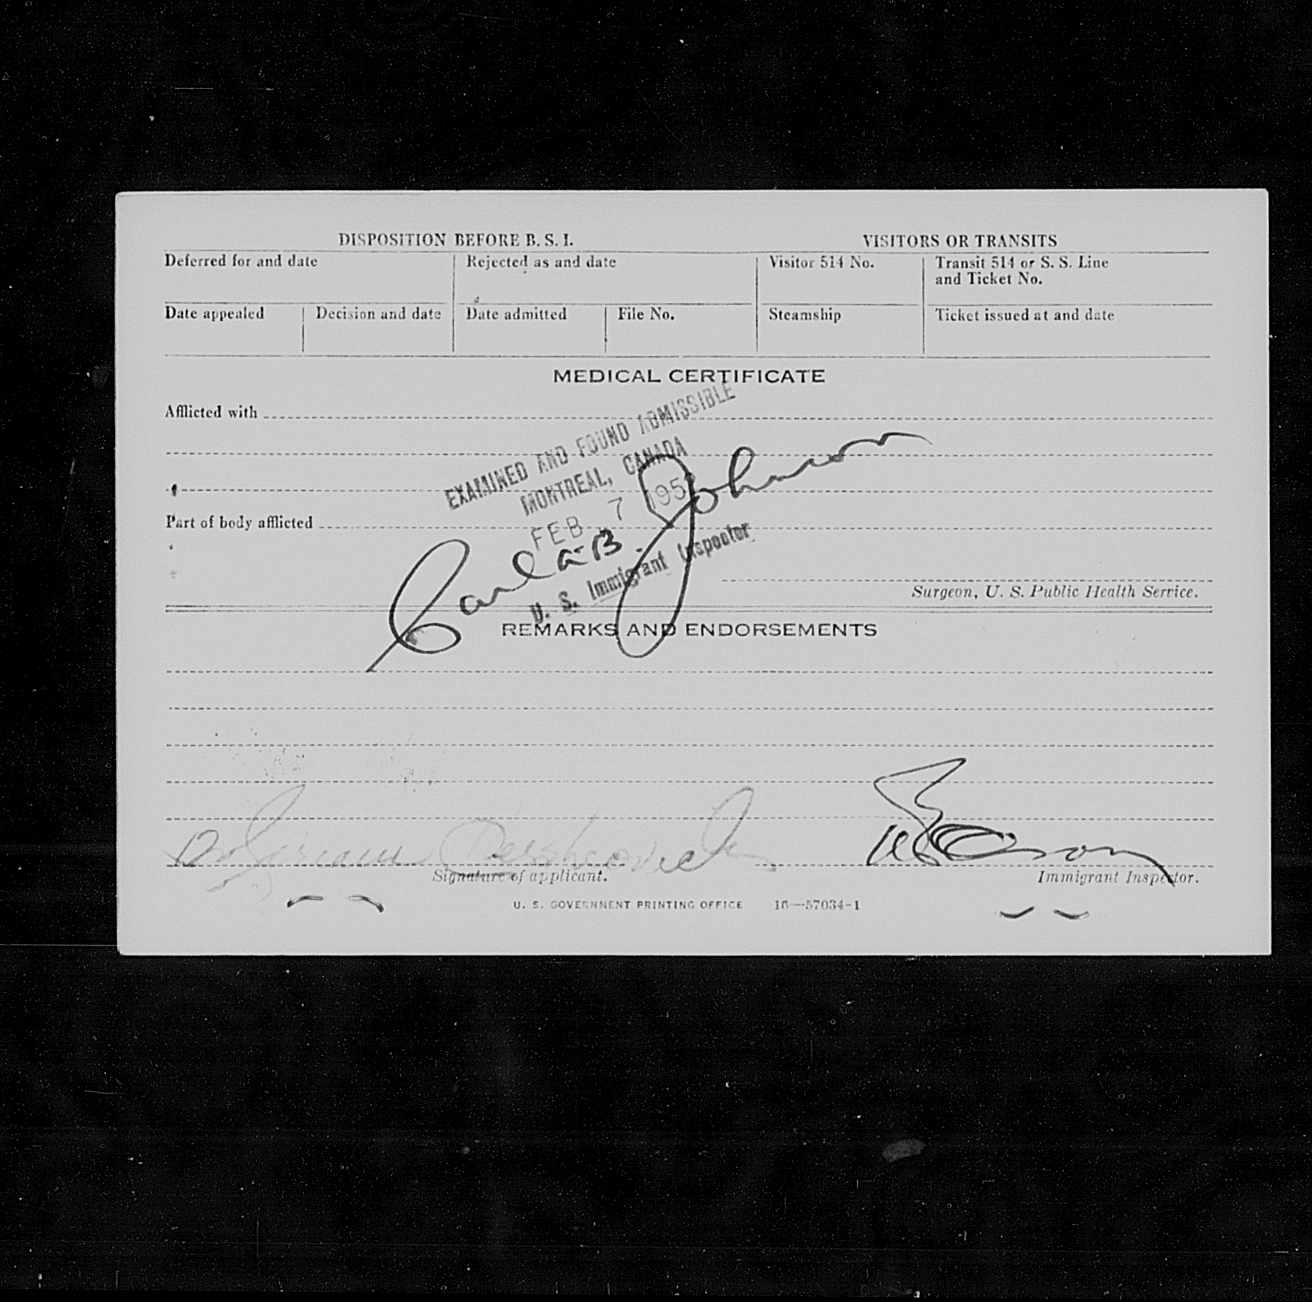 DISPOSITION BEFORE B. S. I. VISITORS OR TRANSITS
Deferred for and date Rejected as and date Visitor 514 No. Transit 514 or S. S. Line and Ticket No.
Date appealed Decision and date Date admitted File No. Steamship Ticket issued at and date
MEDICAL CERTIFICATE
Afflicted with
EXAMINED AND FOUND ADMISSIBLE
MONTREAL, CANADA
FEB 7 195
Part of body afflicted
Carl B. Johnson
U. S. Immigrant Inspector
Surgeon, U. S. Public Health Service.
REMARKS AND ENDORSEMENTS
Signature of applicant. Immigrant Inspector.
U. S. GOVERNMENT PRINTING OFFICE 16—57034-1